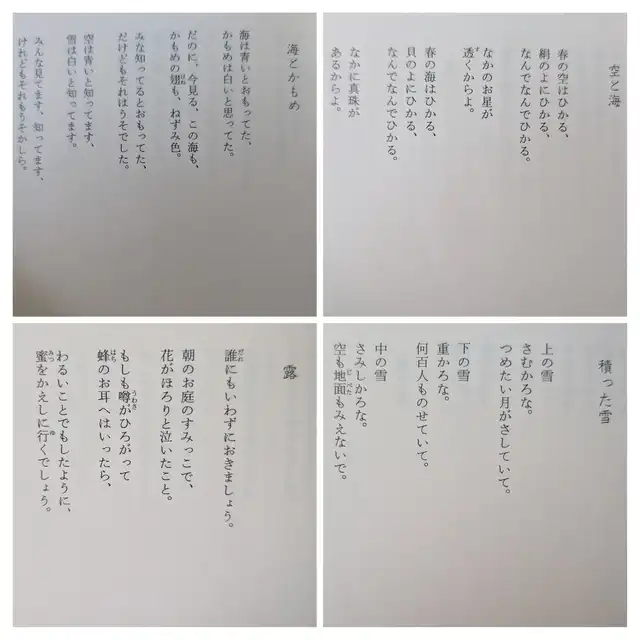 海とかもめ
海は青いとおもってた、
かもめは白いと思ってた。
だのに、今見る、この海も、
かもめの翅も、ねずみ色。
みな知ってるとおもってた、
だけどもそれはうそでした。
空は青いと知ってます、
雪は白いと知ってます。
みんな見てます、知ってます、
けれどもそれもうそかしら。
空と海
春の空はひかる、
絹のよにひかる、
なんでなんでひかる。
なかのお星が
透くからよ。
春の海はひかる、
貝のよにひかる、
なんでなんでひかる。
なかに真珠が
あるからよ。
露
誰にもいわずにおきましょう。
朝のお庭のすみっこで、
花がほろりと泣いたこと。
もしも噂がひろがって
蜂のお耳へはいったら、
わるいことでもしたように、
蜜をかえしに行くでしょう。
積った雪
上の雪
さむかろな。
つめたい月がさしていて。
下の雪
重かろな。
何百人ものせていて。
中の雪
さみしかろな。
空も地面もみえないで。